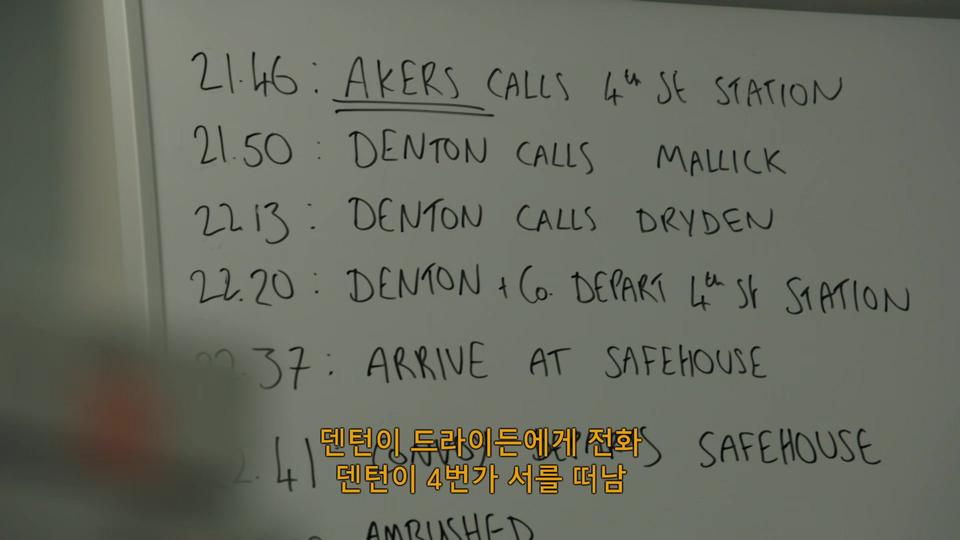 21.46 : AKERS CALLS 4th St STATION
21.50 : DENTON CALLS MALLICK
22 13 : DENTON CALLS DRYDEN
22.20 : DENTON + Co. DEPART 4th St STATION
37 : ARRIVE AT SAFEHOUSE
.41 SAFEHOUSE
AMBUSHED
덴턴이 드라이든에게 전화
덴턴이 4번가 서를 떠남